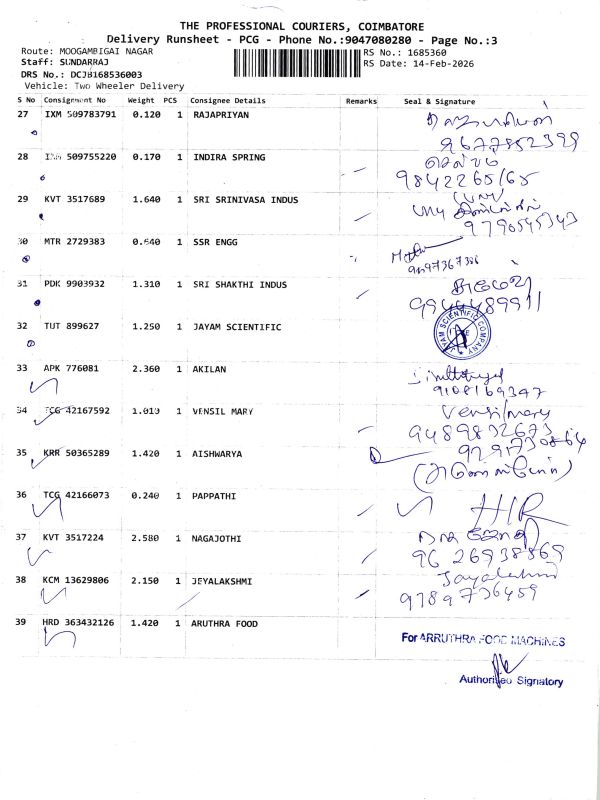 THE PROFESSIONAL COURIERS, COIMBATORE
Delivery Runsheet - PCG - Phone No.:9047080280 - Page No.:3
Route: MOOGAMBIGAI NAGAR RS No.: 1685360
Staff: SUNDARRAJ RS Date: 14-Feb-2026
DRS No.: DCJB168536003
Vehicle: Two Wheeler Delivery
S No Consignment No Weight PCS Consignee Details Remarks Seal & Signature
27 IXM 509783791 0.120 1 RAJAPRIYAN
9677852399
28 IXM 509755220 0.170 1 INDIRA SPRING செல்வம்
9842265165
29 KVT 3517689 1.640 1 SRI SRINIVASA INDUS
9790545343
30 MTR 2729383 0.640 1 SSR ENGG
31 PDK 9903932 1.310 1 SRI SHAKTHI INDUS
9944489911
32 TUT 899627 1.250 1 JAYAM SCIENTIFIC JAYAM SCIENTIFIC COMPANY
33 APK 776081 2.360 1 AKILAN
9108169347
34 TCG 42167592 1.010 1 VENSIL MARY Vensilmary
9489832673
35 KRR 50365289 1.420 1 AISHWARYA
36 TCG 42166073 0.240 1 PAPPATHI
37 KVT 3517224 2.580 1 NAGAJOTHI
9626938869
38 KCM 13629806 2.150 1 JEYALAKSHMI Jayalakshmi
9789736459
39 HRD 363432126 1.420 1 ARUTHRA FOOD
For ARRUTHRA FOOD MACHINES
Authorised Signatory